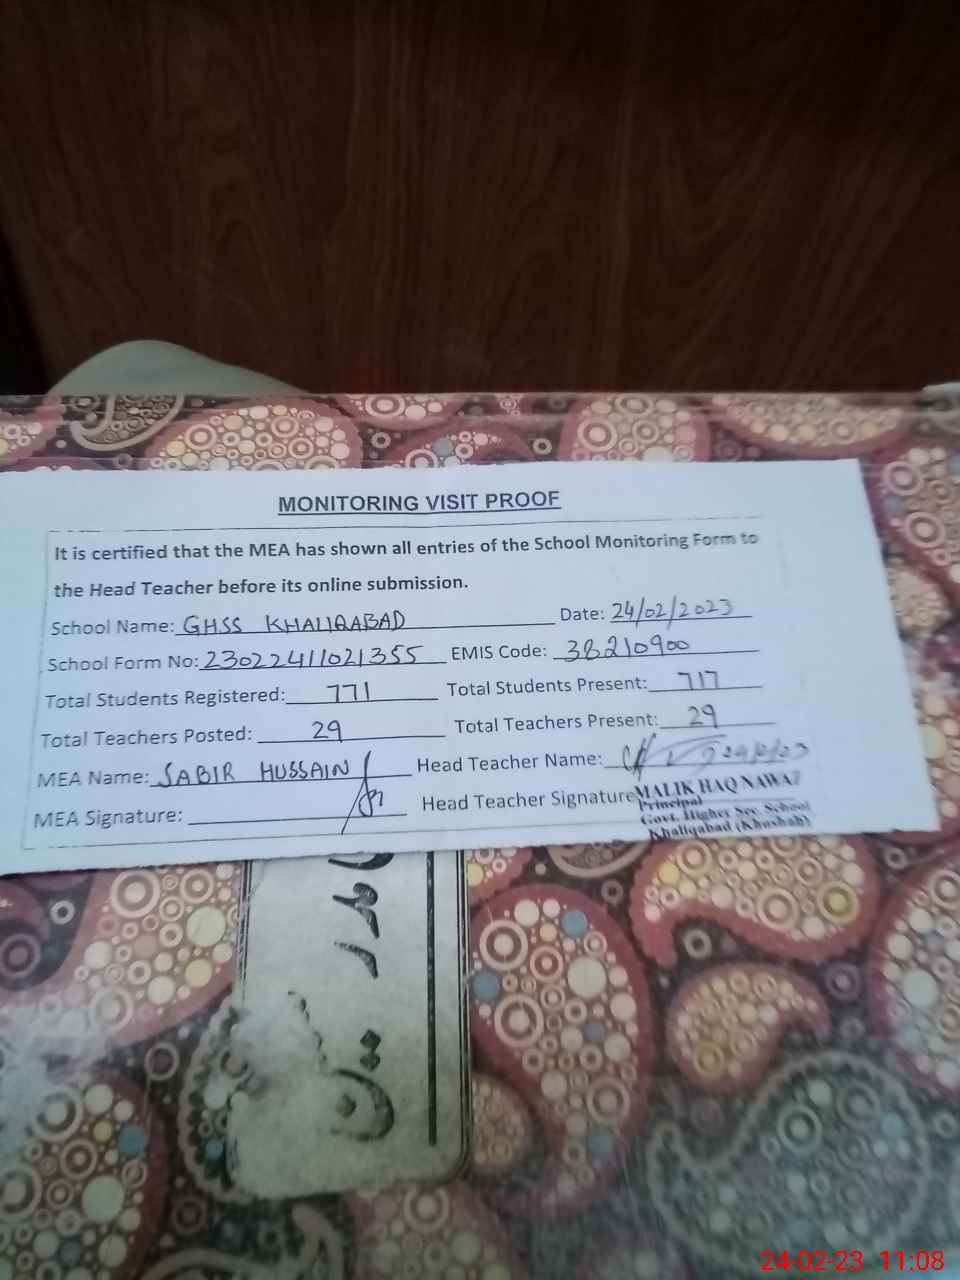 MONITORING VISIT PROOF
It is certified that the MEA has shown all entries of the School Monitoring Form to
the Head Teacher before its online submission.
School Name: GHSS KHALIQABAD Date: 24/02/2023
School Form No: 23022411021355 EMIS Code: 38210900
Total Students Registered: 771 Total Students Present: 717
Total Teachers Posted: 29 Total Teachers Present: 29
MEA Name: SABIR HUSSAIN Head Teacher Name:
MEA Signature: Head Teacher Signature
MALIK HAQ NAWAZ
Principal
Govt. Higher Sec. School
Khaliqabad (Khushab)
24-02-23 11:08